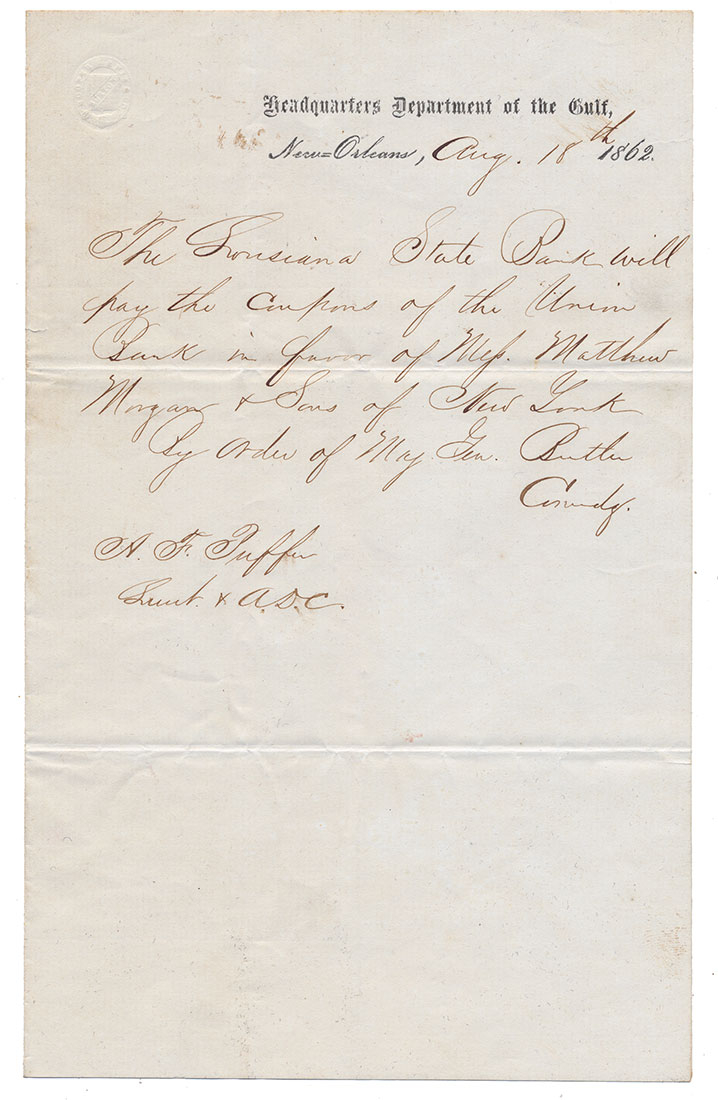 Headquarters Department of the Gulf,
New=Orleans, Aug. 18th 1862.
The Louisiana State Bank will
pay the Coupons of the Union
Bank in favor of Mess. Matthew
Morgan & Sons of New York
By order of Maj. Gen. Butler
Comdg.
A. F. Puffer
Lieut. & A.D.C.